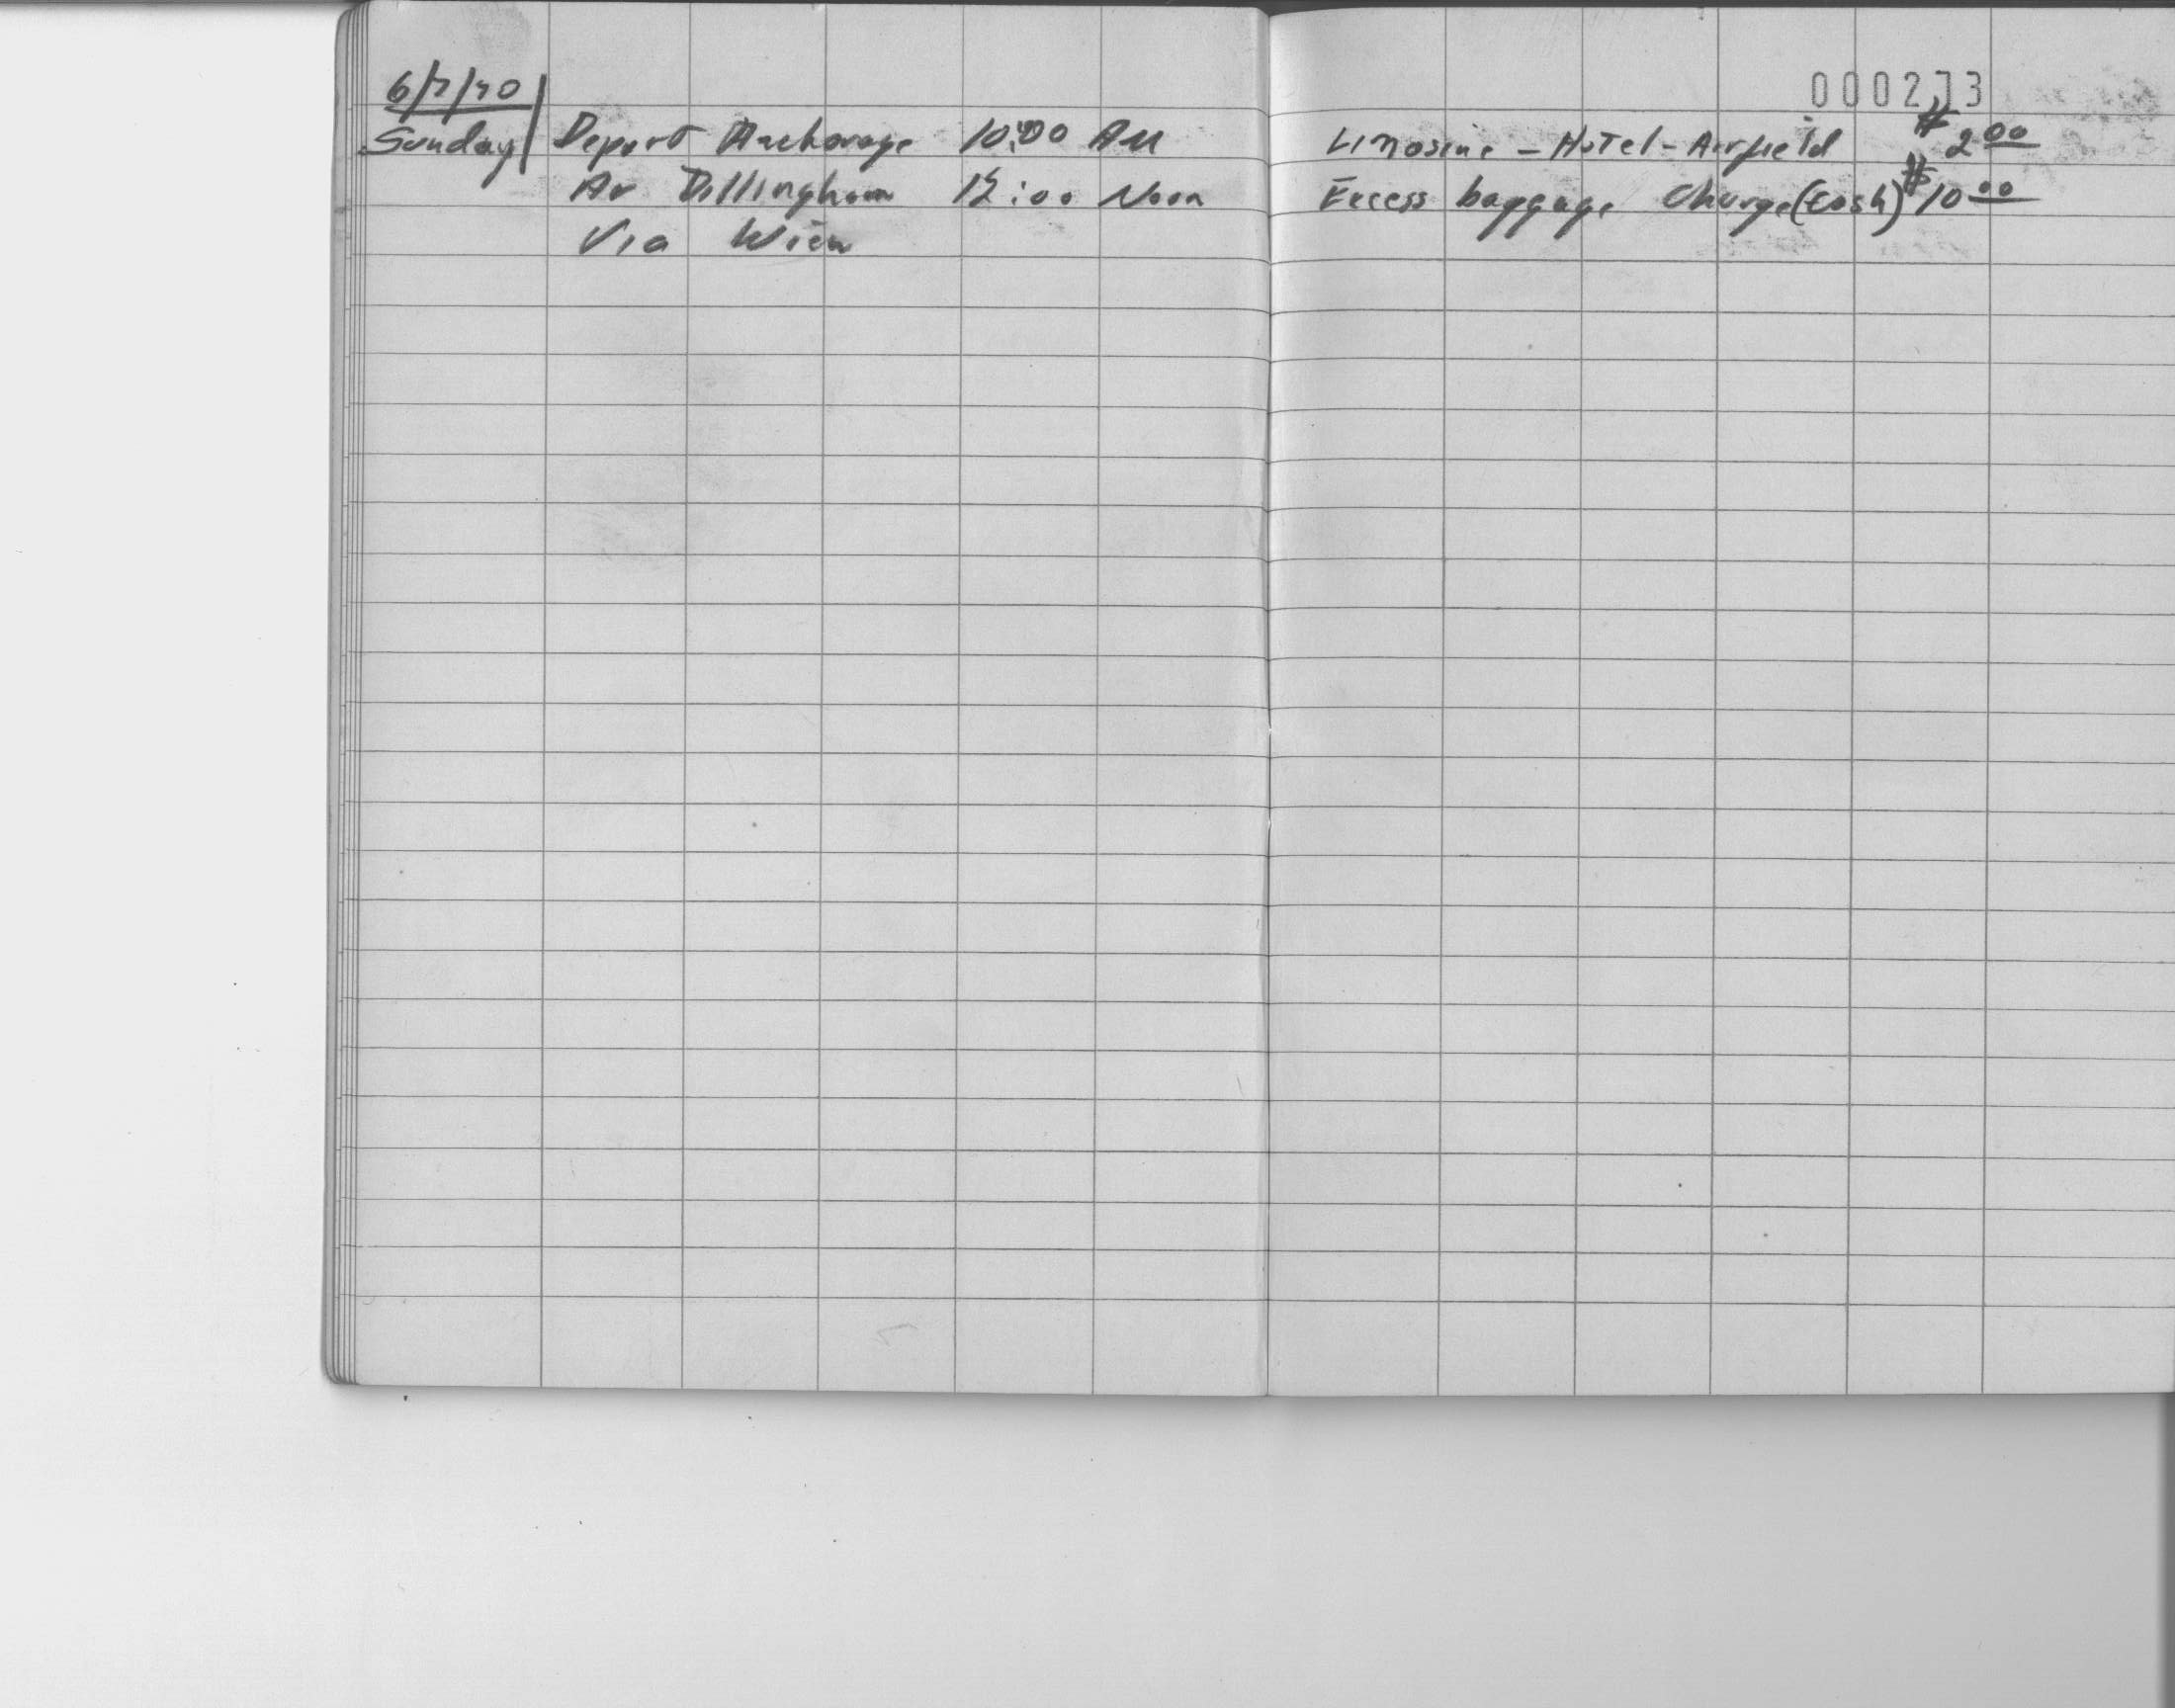 6/7/70
Sunday Depart Anchorage 10:00 AM
Ar Dillingham 12:00 Noon
Via Wien
000273
Limosine - Hotel - Airfield $2 00
Excess baggage Charge (Cash) $10 00